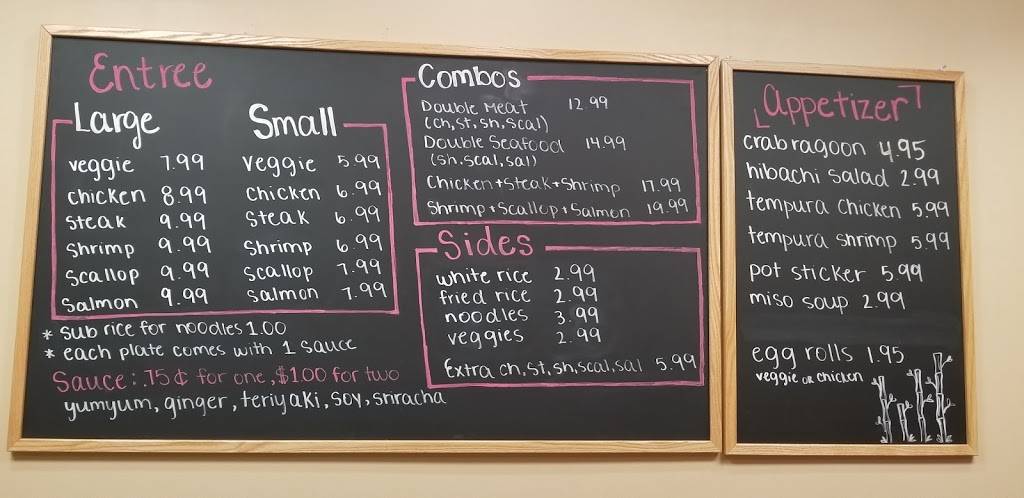 Entree
Large
veggie 7.99
chicken 8.99
steak 9.99
Shrimp 9.99
Scallop 9.99
Salmon 9.99
Small
veggie 5.99
Chicken 6.99
Steak 6.99
Shrimp 6.99
Scallop 7.99
Salmon 7.99
* Sub rice for noodles 1.00
* each plate comes with 1 sauce
Sauce: .75¢ for one, $1.00 for two
yumyum, ginger, teriyaki, soy, sriracha
Combos
Double Meat 12.99
(ch, st, sh, scal)
Double Seafood 14.99
(sh, scal, sal)
Chicken + Steak + Shrimp 17.99
Shrimp + Scallop + Salmon 19.99
Sides
white rice 2.99
fried rice 2.99
noodles 3.99
veggies 2.99
Extra ch, st, sh, scal, sal 5.99
Appetizer
crab ragoon 4.95
hibachi salad 2.99
tempura chicken 5.99
tempura shrimp 5.99
pot sticker 5.99
miso soup 2.99
egg rolls 1.95
veggie or chicken